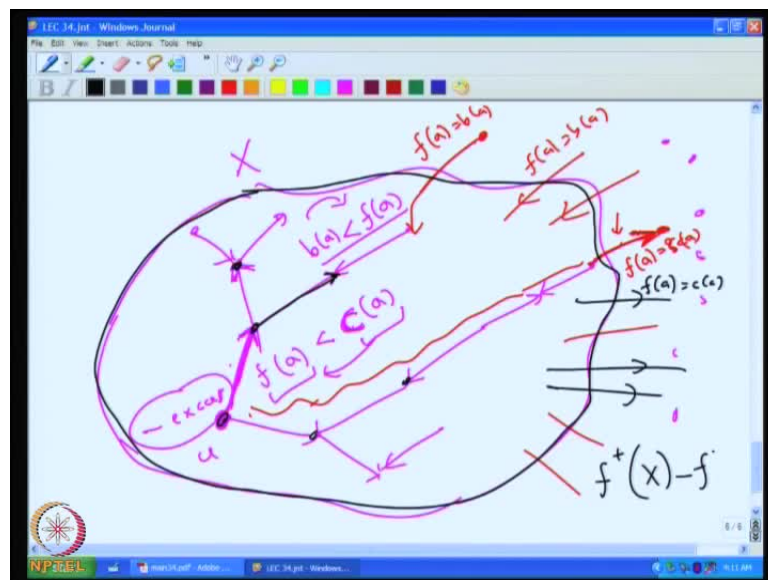 LEC 34.jnt - Windows Journal
File Edit View Insert Actions Tools Help
B I
X
f(a)=b(a)
f(a)=b(a)
b(a)<f(a)
f(a) < c(a)
f(a)=c(a)
u
f⁺(X)-f
6/6
NPTEL
main34.pdf - Adobe ...
LEC 34.jnt - Windows...
9:11 AM